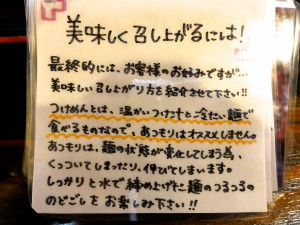 美味しく召し上がるには!
最終的には、お客様のお好みですが…
美味しい召し上がり方を紹介させて下さい!!
つけめんとは、温かいつけ汁と冷たい麺で
食べるものなので、あつもりはオススメしません。
あつもりは、麺の状態が変化してしまう為、
くっついてしまったり、伸びてしまいます。
しっかりと水で締め上げた麺のつるつるの
のどごしをお楽しみ下さい!!